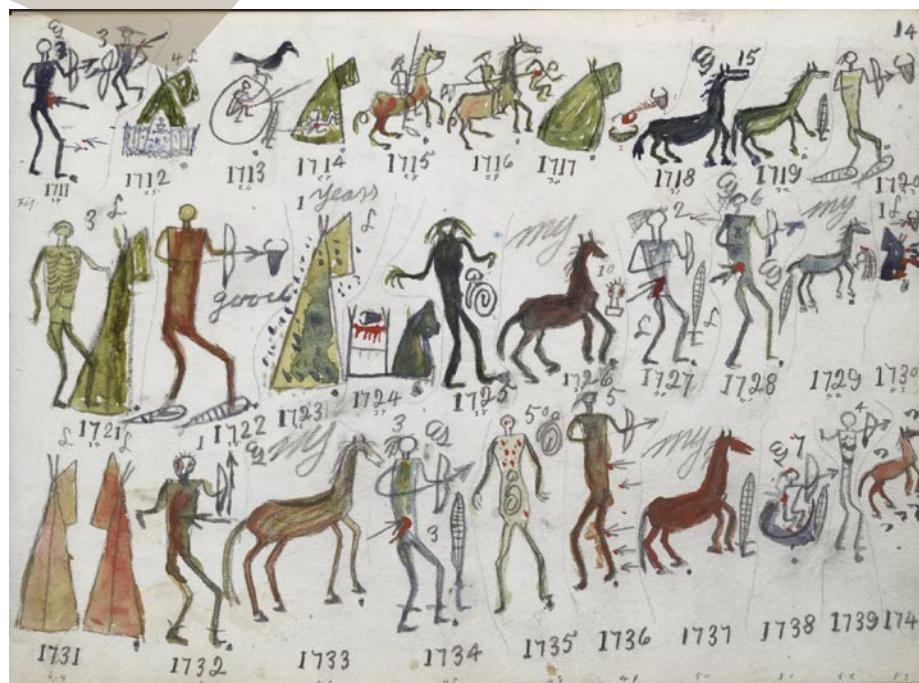 14
3
3
4
15
1711 1712 1713 1714 1715 1716 1717 1718 1719
1 years
3
my
10
2
6
my
1
good
1721 1722 1723 1724 1725 1726 1727 1728 1729 1730
1
my
3
50
5
my
7
4
3
1731 1732 1733 1734 1735 1736 1737 1738 1739 174